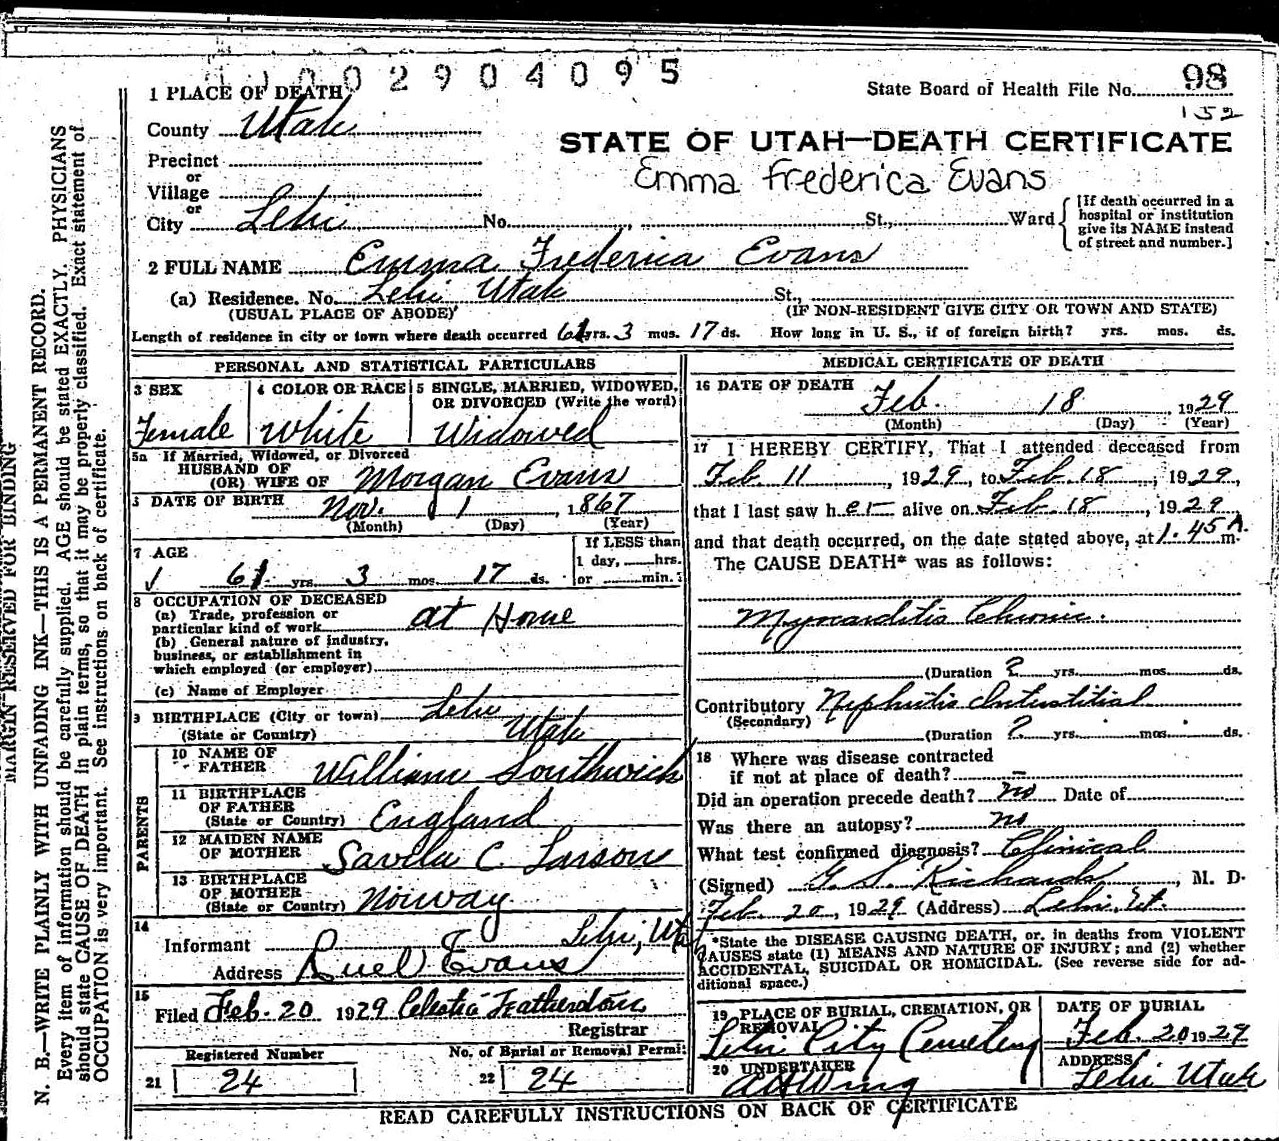 0 0 2 9 0 4 0 9 5
1 PLACE OF DEATH
State Board of Health File No. 98
152
County Utah
STATE OF UTAH—DEATH CERTIFICATE
Precinct
Emma Frederica Evans
or
Village
or
City Lehi No. St., Ward
[If death occurred in a hospital or institution give its NAME instead of street and number.]
2 FULL NAME Emma Frederica Evans
(a) Residence. No. Lehi Utah St.,
(USUAL PLACE OF ABODE) (IF NON-RESIDENT GIVE CITY OR TOWN AND STATE)
Length of residence in city or town where death occurred 61 yrs. 3 mos. 17 ds. How long in U. S., if of foreign birth? yrs. mos. ds.
PERSONAL AND STATISTICAL PARTICULARS
3 SEX
Female
4 COLOR OR RACE
White
5 SINGLE, MARRIED, WIDOWED,
OR DIVORCED (Write the word)
Widowed
5a If Married, Widowed, or Divorced
HUSBAND OF
(OR) WIFE OF Morgan Evans
DATE OF BIRTH Nov. 1, 1867
(Month) (Day) (Year)
7 AGE
61 yrs. 3 mos. 17 ds.
If LESS than
1 day, hrs.
or min.
8 OCCUPATION OF DECEASED
(a) Trade, profession or
particular kind of work at Home
(b) General nature of industry,
business, or establishment in
which employed (or employer)
(c) Name of Employer
9 BIRTHPLACE (City or town) Lehi
(State or Country) Utah
PARENTS
10 NAME OF
FATHER William Southwick
11 BIRTHPLACE
OF FATHER
(State or Country) England
12 MAIDEN NAME
OF MOTHER C. Larson
13 BIRTHPLACE
OF MOTHER
(State or Country) Norway
14
Informant Lehi, Utah
Address Ruel Evans
15
Filed Feb. 20 1929 Celestia
Registrar
Registered Number
21 24
No. of Burial or Removal Permit
22 24
MEDICAL CERTIFICATE OF DEATH
16 DATE OF DEATH Feb. 18, 1929
(Month) (Day) (Year)
17 I HEREBY CERTIFY, That I attended deceased from
Feb 11, 1929, to Feb. 18, 1929,
that I last saw her alive on Feb. 18, 1929
and that death occurred, on the date stated above, at 1.45 A. m.
The CAUSE DEATH* was as follows:
Myocarditis Chronic.
(Duration ? yrs. mos. ds.
Contributory Nephritis Interstitial
(Secondary)
(Duration ? yrs. mos. ds.
18 Where was disease contracted
if not at place of death? —
Did an operation precede death? no Date of
Was there an autopsy? no
What test confirmed diagnosis? Clinical
(Signed) Richards, M. D.
Feb. 20, 1929 (Address) Lehi, Ut.
*State the DISEASE CAUSING DEATH, or, in deaths from VIOLENT
CAUSES state (1) MEANS AND NATURE OF INJURY; and (2) whether
ACCIDENTAL, SUICIDAL OR HOMICIDAL. (See reverse side for ad-
ditional space.)
19 PLACE OF BURIAL, CREMATION, OR
REMOVAL
Lehi City Cemetery
DATE OF BURIAL
Feb. 20 1929
20 UNDERTAKER
Wing
ADDRESS
Lehi Utah
READ CAREFULLY INSTRUCTIONS ON BACK OF CERTIFICATE
MARGIN RESERVED FOR BINDING
N. B.—WRITE PLAINLY WITH UNFADING INK—THIS IS A PERMANENT RECORD.
Every item of information should be carefully supplied. AGE should be stated EXACTLY. PHYSICIANS
should state CAUSE OF DEATH in plain terms, so that it may be properly classified. Exact statement of
OCCUPATION is very important. See instructions on back of certificate.